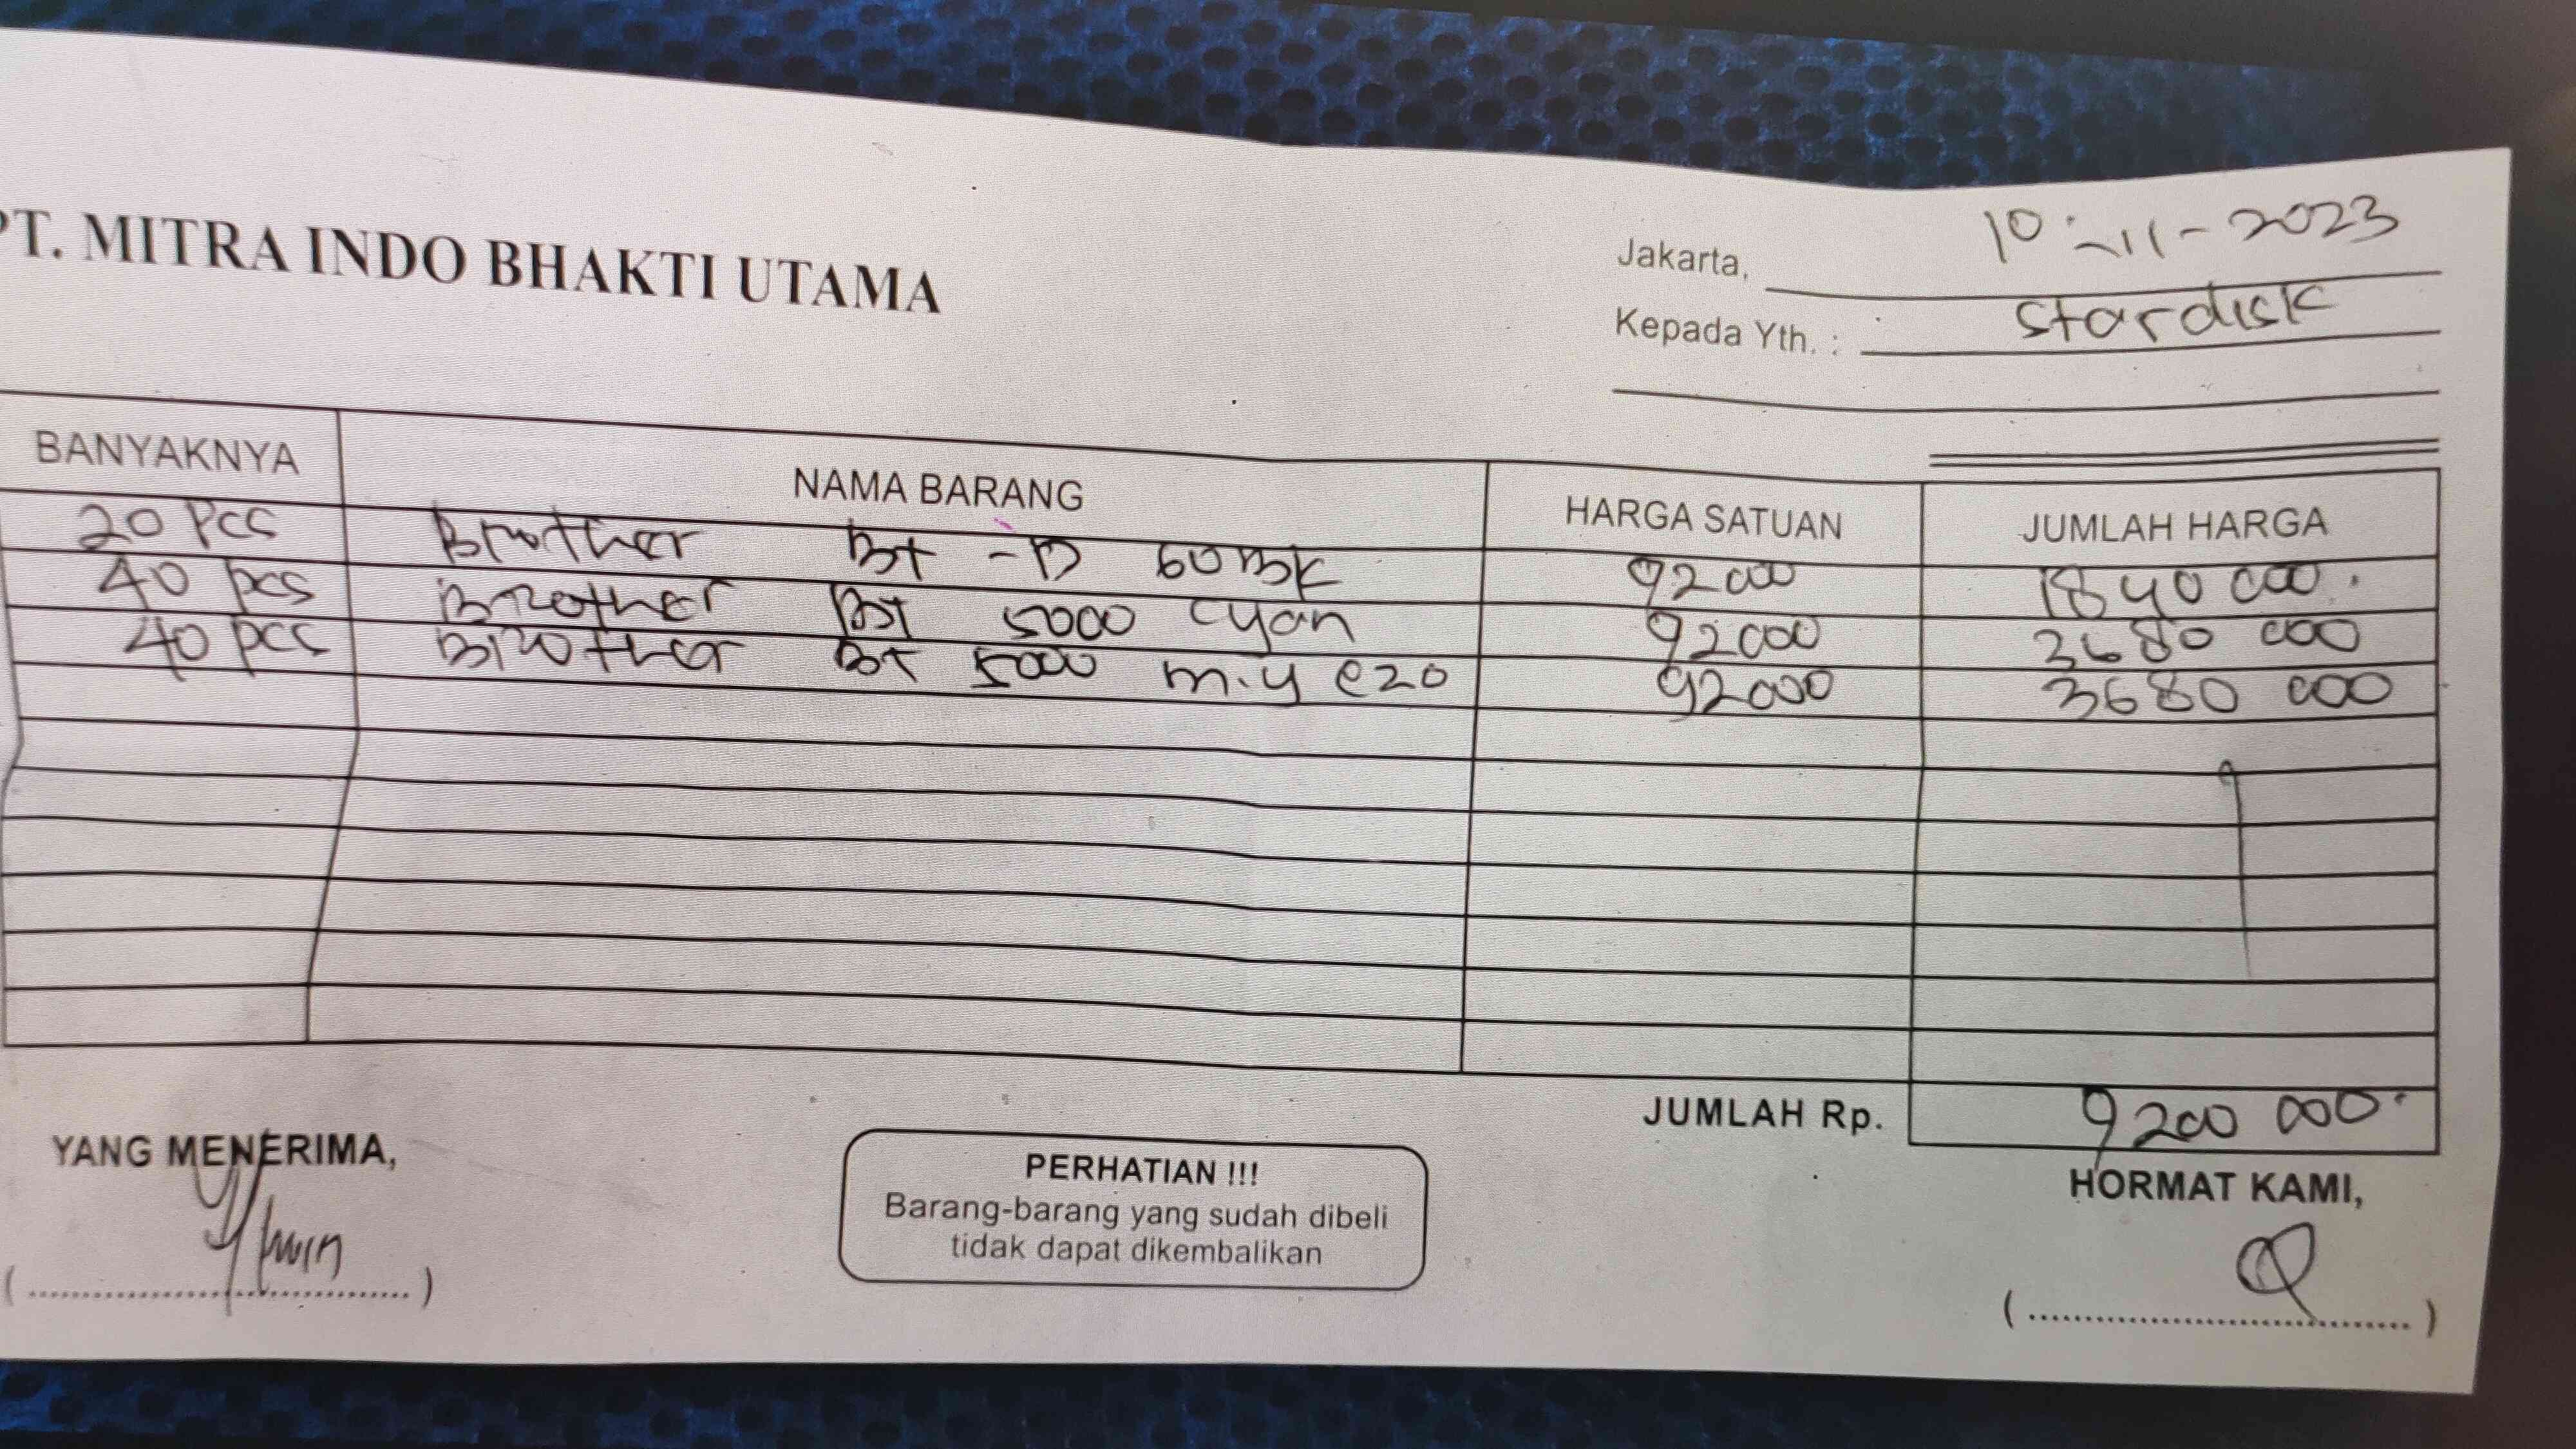 PT. MITRA INDO BHAKTI UTAMA
Jakarta, 10-11-2023
Kepada Yth. : Stardisk
BANYAKNYA NAMA BARANG HARGA SATUAN JUMLAH HARGA
20 Pcs Brother Bt -D 60 BK 92000 1840 000.
40 pcs Brother Bt 5000 cyan 92000 3680 000
40 pcs Brother Bt 5000 m.y e20 92000 3680 000
JUMLAH Rp. 9200 000.
YANG MENERIMA,
PERHATIAN !!!
Barang-barang yang sudah dibeli
tidak dapat dikembalikan
HORMAT KAMI,